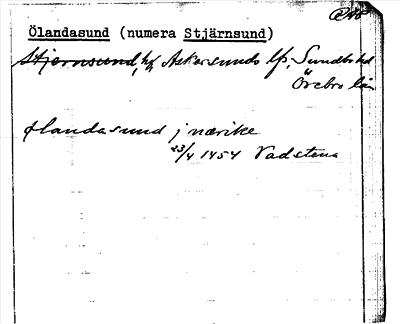 Ölandasund (numera Stjärnsund)
Stjernsund, hg Askersunds lfs, Sundbo hd
Örebro län
ølandasund j nærike
23/4 1454 Vadstena